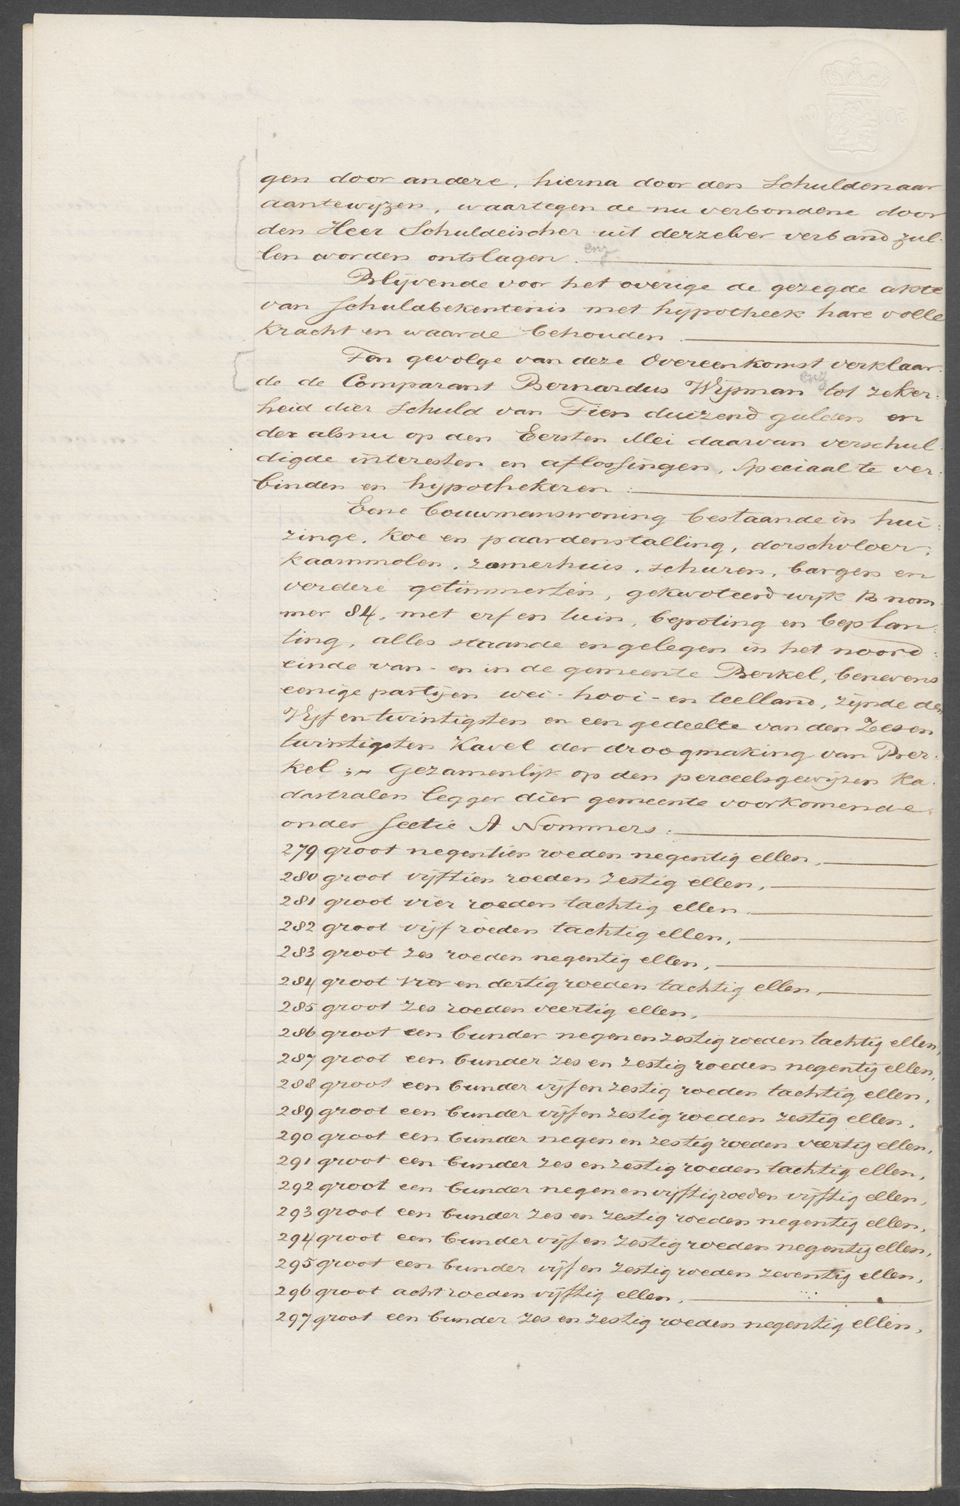 gen door andere, hierna door den Schuldenaar
aantewijzen, waartegen de nu verbondene door
den Heer Schuldeischer uit derzelver verband zul-
len worden ontslagen. enz
Blijvende voor het overige de gezegde akte
van Schuldbekentenis met hypotheek hare volle
kracht en waarde behouden.
Ten gevolge van deze Overeenkomst verklaar-
de de Comparant Bernardus Wijsman enz tot zeker-
heid dier Schuld van Tien duizend gulden en
der alsnu op den Eersten Mei daarvan verschul-
digde interesten en aflossingen, speciaal te ver-
binden en hypothekeren:
Eene bouwmanswoning bestaande in hui-
zinge, koe en paardenstalling, dorschvloer,
kaasmolen, zomerhuis, schuren, bargen en
verdere getimmerten, gekwoteerd wijk B nom-
mer 84, met erf en tuin, bepoting en beplan-
ting, alles staande en gelegen in het noord-
einde van- en in de gemeente Berkel, benevens
eenige partijen wei- hooi- en teelland, zijnde den
Vijf en twintigsten en een gedeelte van den Zes en
twintigsten Kavel der droogmaking van Ber-
kel;- Gezamenlijk op den perceelsgewijzen Ka-
dastralen legger dier gemeente voorkomende
onder Sectie A Nommers:
279 groot negentien roeden negentig ellen,
280 groot vijftien roeden zestig ellen,
281 groot vier roeden tachtig ellen
282 groot vijf roeden tachtig ellen,
283 groot zes roeden negentig ellen,
284 groot vier en dertig roeden tachtig ellen,
285 groot zes roeden veertig ellen,
286 groot een bunder negen en zestig roeden tachtig ellen,
287 groot een bunder zes en zestig roeden negentig ellen,
288 groot een bunder vijf en zestig roeden tachtig ellen,
289 groot een bunder vijf en zestig roeden zestig ellen,
290 groot een bunder negen en zestig roeden veertig ellen,
291 groot een bunder zes en zestig roeden tachtig ellen,
292 groot een bunder negen en vijftig roeden vijftig ellen,
293 groot een bunder zes en zestig roeden negentig ellen,
294 groot een bunder vijf en zestig roeden negentig ellen,
295 groot een bunder vijf en zestig roeden zeventig ellen,
296 groot acht roeden vijftig ellen,
297 groot een bunder zes en zestig roeden negentig ellen,